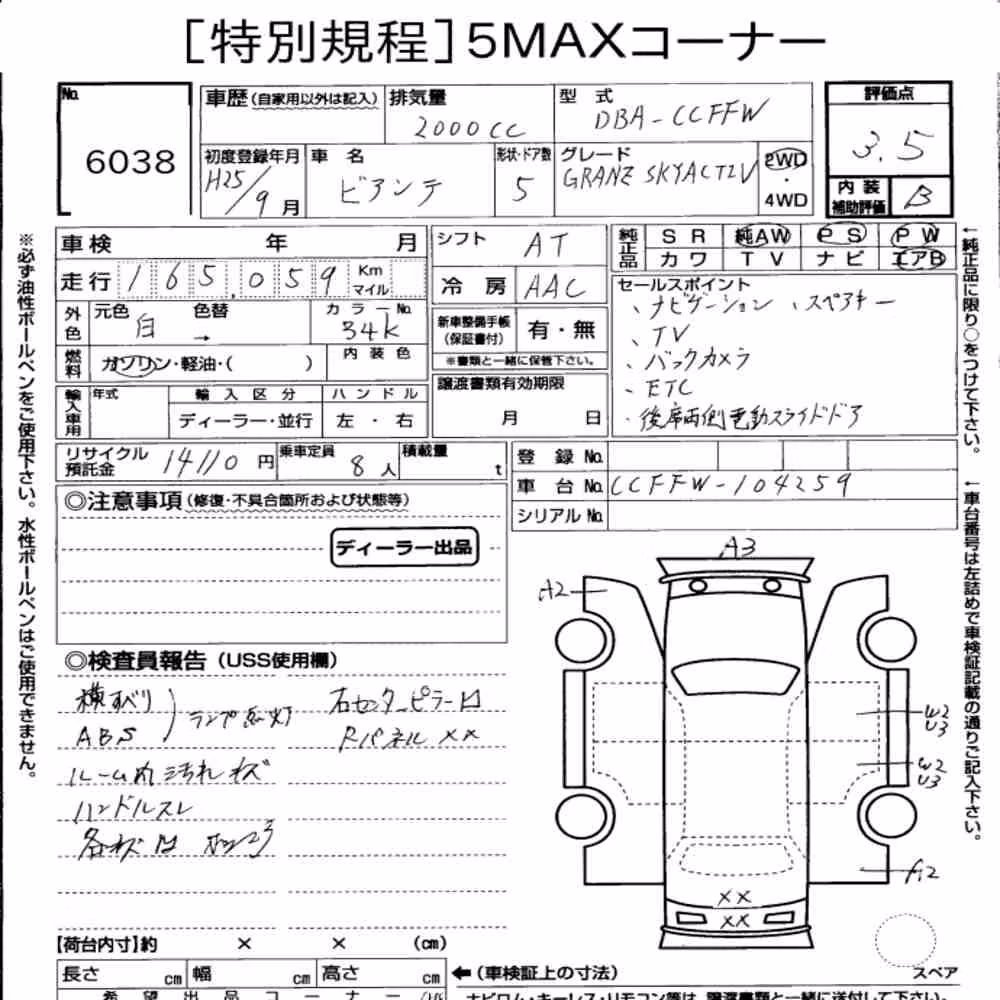 [特別規程]5MAXコーナー
No. 6038
車歴(自家用以外は記入) 排気量 2000cc 型式 DBA-CCFFW
初度登録年月 H25/9月 車名 ビアンテ 形状・ドア数 5 グレード GRANZ SKYACTIV 2WD・4WD
評価点 3.5
内装補助評価 B
車検 年 月
走行 165,059 Km マイル
外色 元色 白 色替 → カラーNo. 34K
燃料 ガソリン・軽油・( ) 内装色
輸入車用 年式 輸入区分 ハンドル
ディーラー・並行 左・右
リサイクル預託金 14110円 乗車定員 8人 積載量 t
シフト AT
冷房 AAC
新車整備手帳(保証書付) 有・無
※書類と一緒に保管下さい。
譲渡書類有効期限
月 日
純正品 SR 純AW PS PW
カワ TV ナビ エアB
セールスポイント
、ナビゲーション 、スペアキー
、TV
、バックカメラ
・ETC
・後席両側電動スライドドア
登録No.
車台No. CCFFW-104259
シリアルNo.
※必ず油性ボールペンをご使用下さい。水性ボールペンはご使用できません。
←純正品に限り○をつけて下さい。
←車台番号は左詰めで車検証記載の通りご記入下さい。
◎注意事項(修復・不具合箇所および状態等)
ディーラー出品
◎検査員報告(USS使用欄)
横すべり
ABS
ランプ点灯
ルーム内汚れキズ
ハンドルスレ
右センターピラー凹
Rパネル××
A3
A2
W2
U3
W2
U3
A2
××
××
スペア
【荷台内寸】約 × × (cm)
長さ cm 幅 cm 高さ cm
←(車検証上の寸法)
希望出品コーナー
ナビロム・キーレス・リモコン等は、譲渡書類と一緒に送付して下さい。